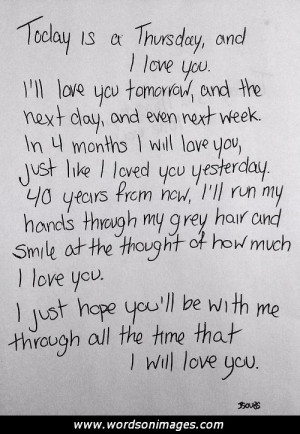 Today is a Thursday, and
I love you.
I'll love you tomorrow, and the
next day, and even next week.
In 4 months I will love you,
just like I loved you yesterday.
40 years from now, I'll run my
hands through my grey hair and
smile at the thought of how much
I love you.
I just hope you'll be with me
through all the time that
I will love you.
www.wordsonimages.com